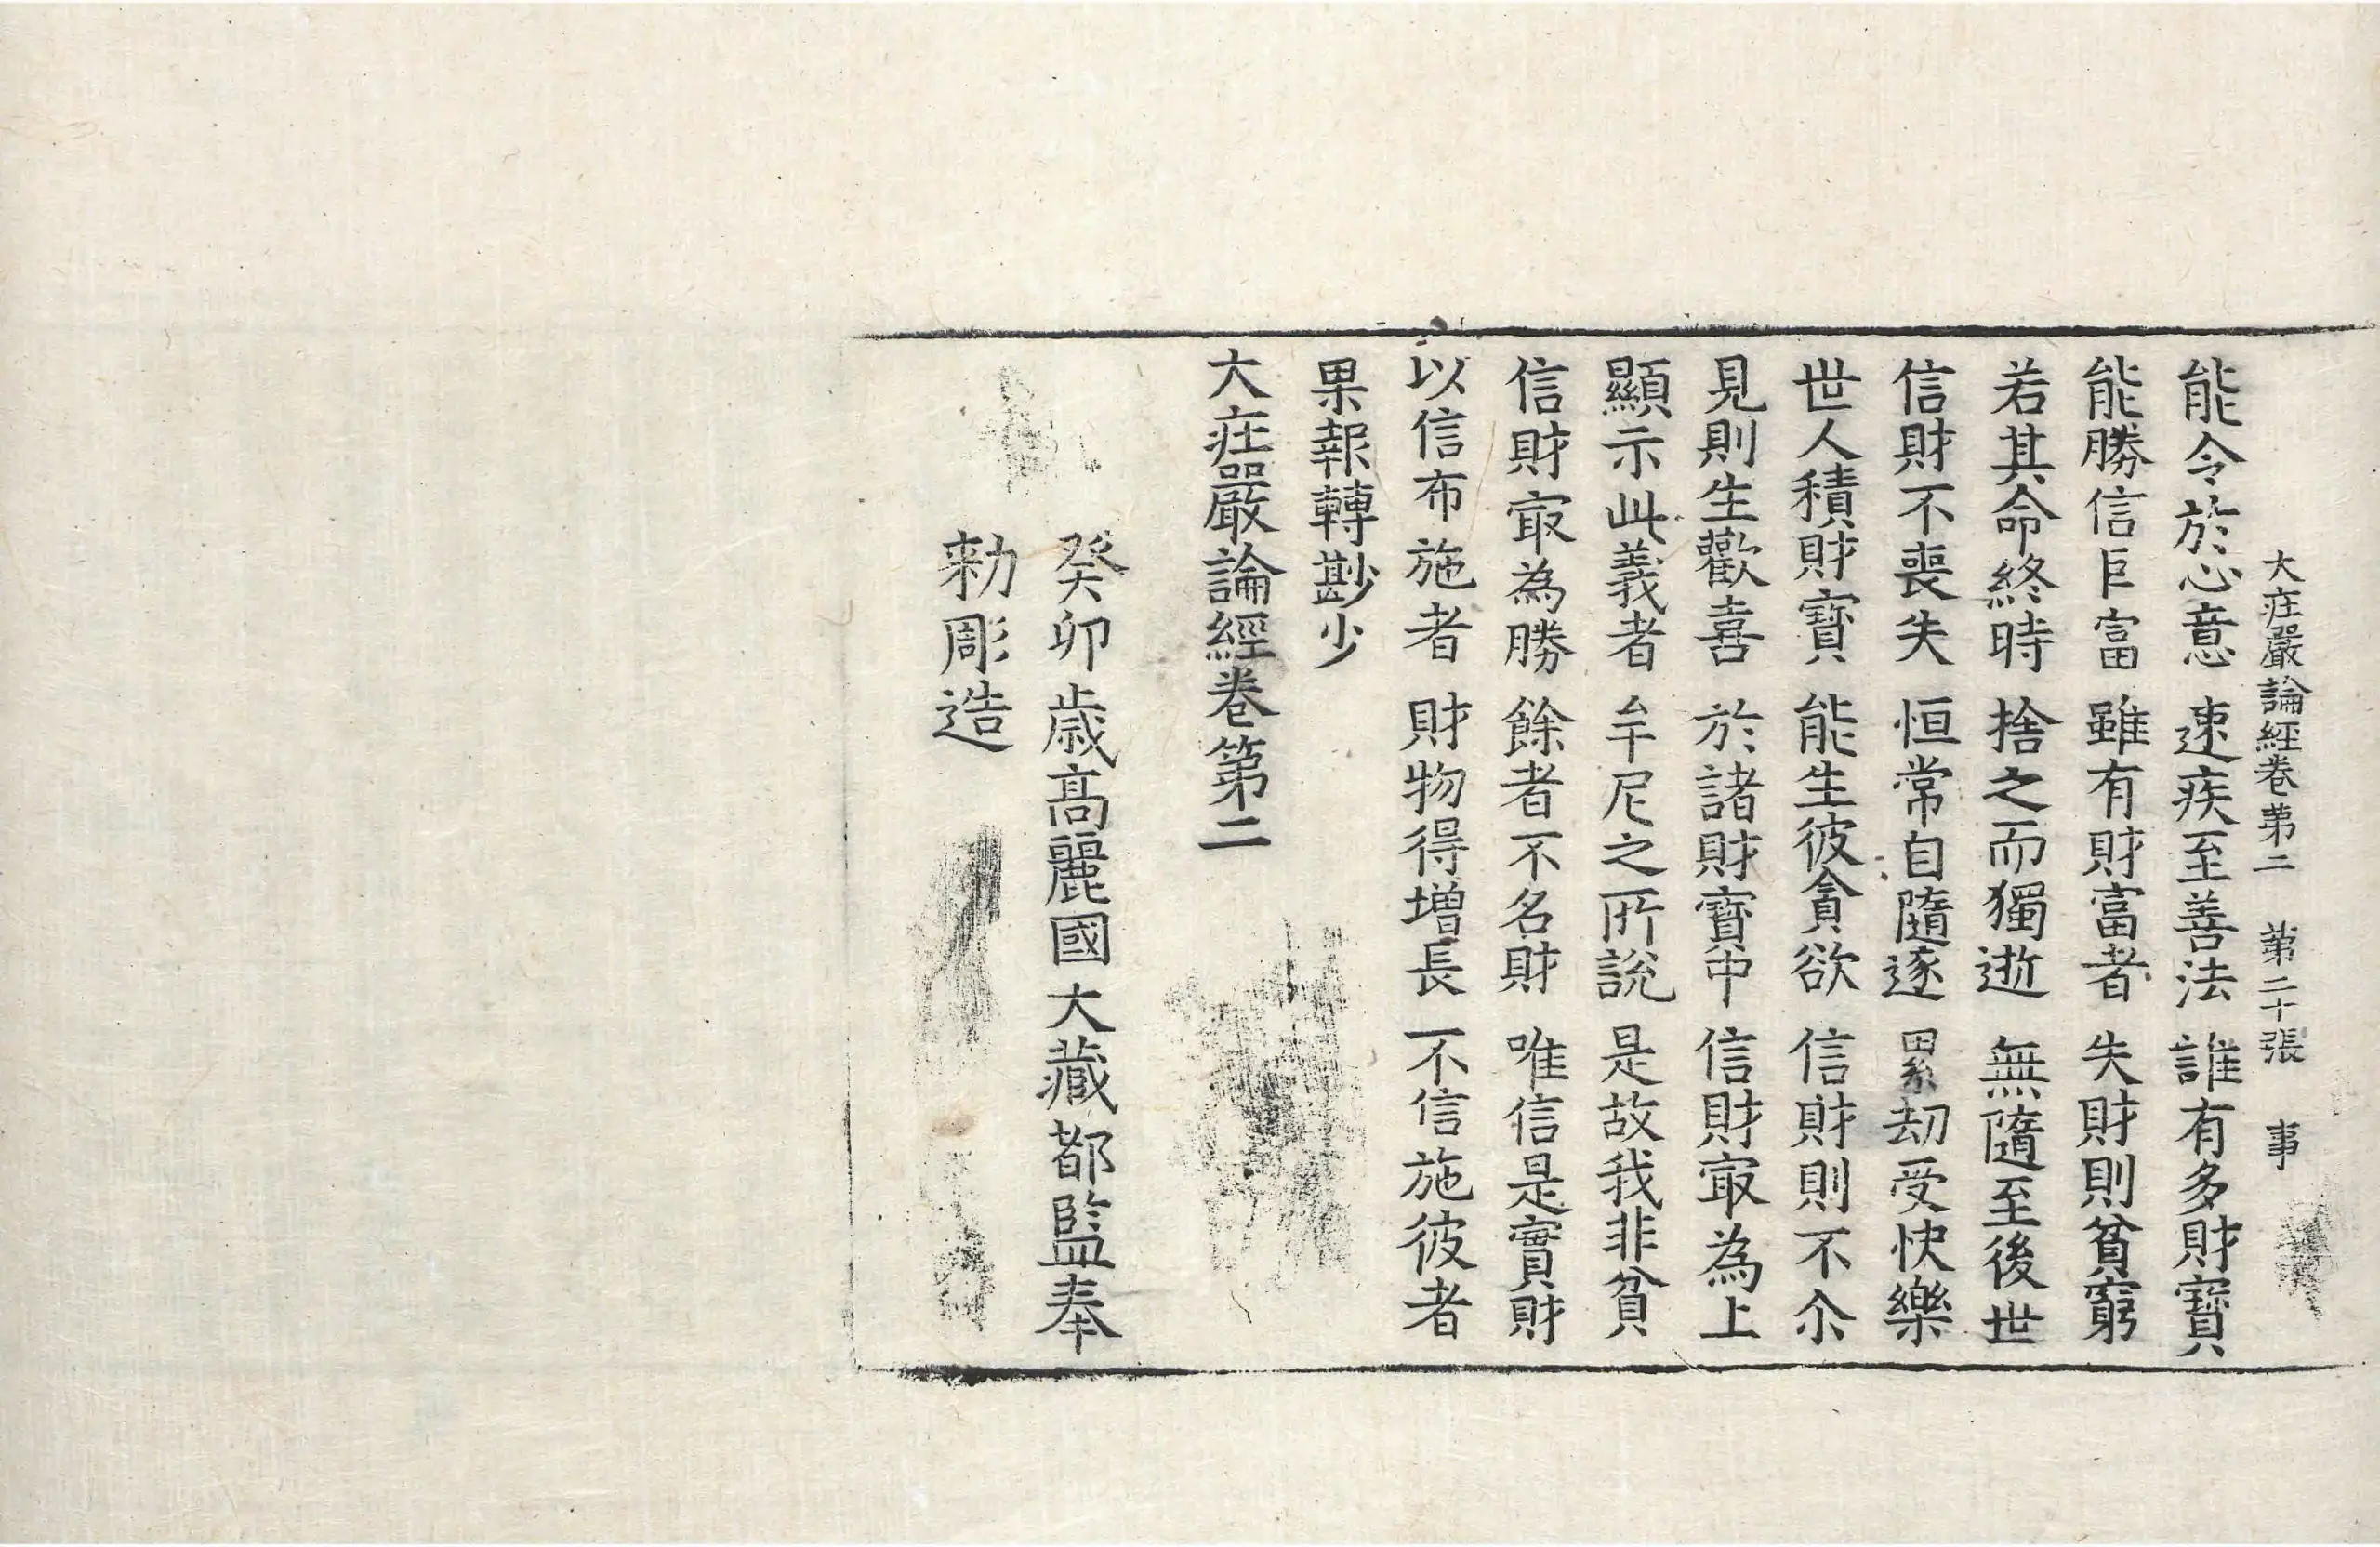 大㽵嚴論經卷第二　第二十張　事
能令於心意　速疾至善法　誰有多財寶
能勝信巨富　雖有財富者　失財則貧窮
若其命終時　捨之而獨逝　無隨至後世
信財不喪失　恒常自隨逐　累劫受快樂
世人積財寶　能生彼貪欲　信財則不尒
見則生歡喜　於諸財寶中　信財㝡為上
顯示此義者　牟尼之所說　是故我非貧
信財㝡為勝　餘者不名財　唯信是實財
以信布施者　財物得增長　不信施彼者
果報轉尠少
大㽵嚴論經卷第二
癸卯歲高麗國大藏都監奉
勑彫造